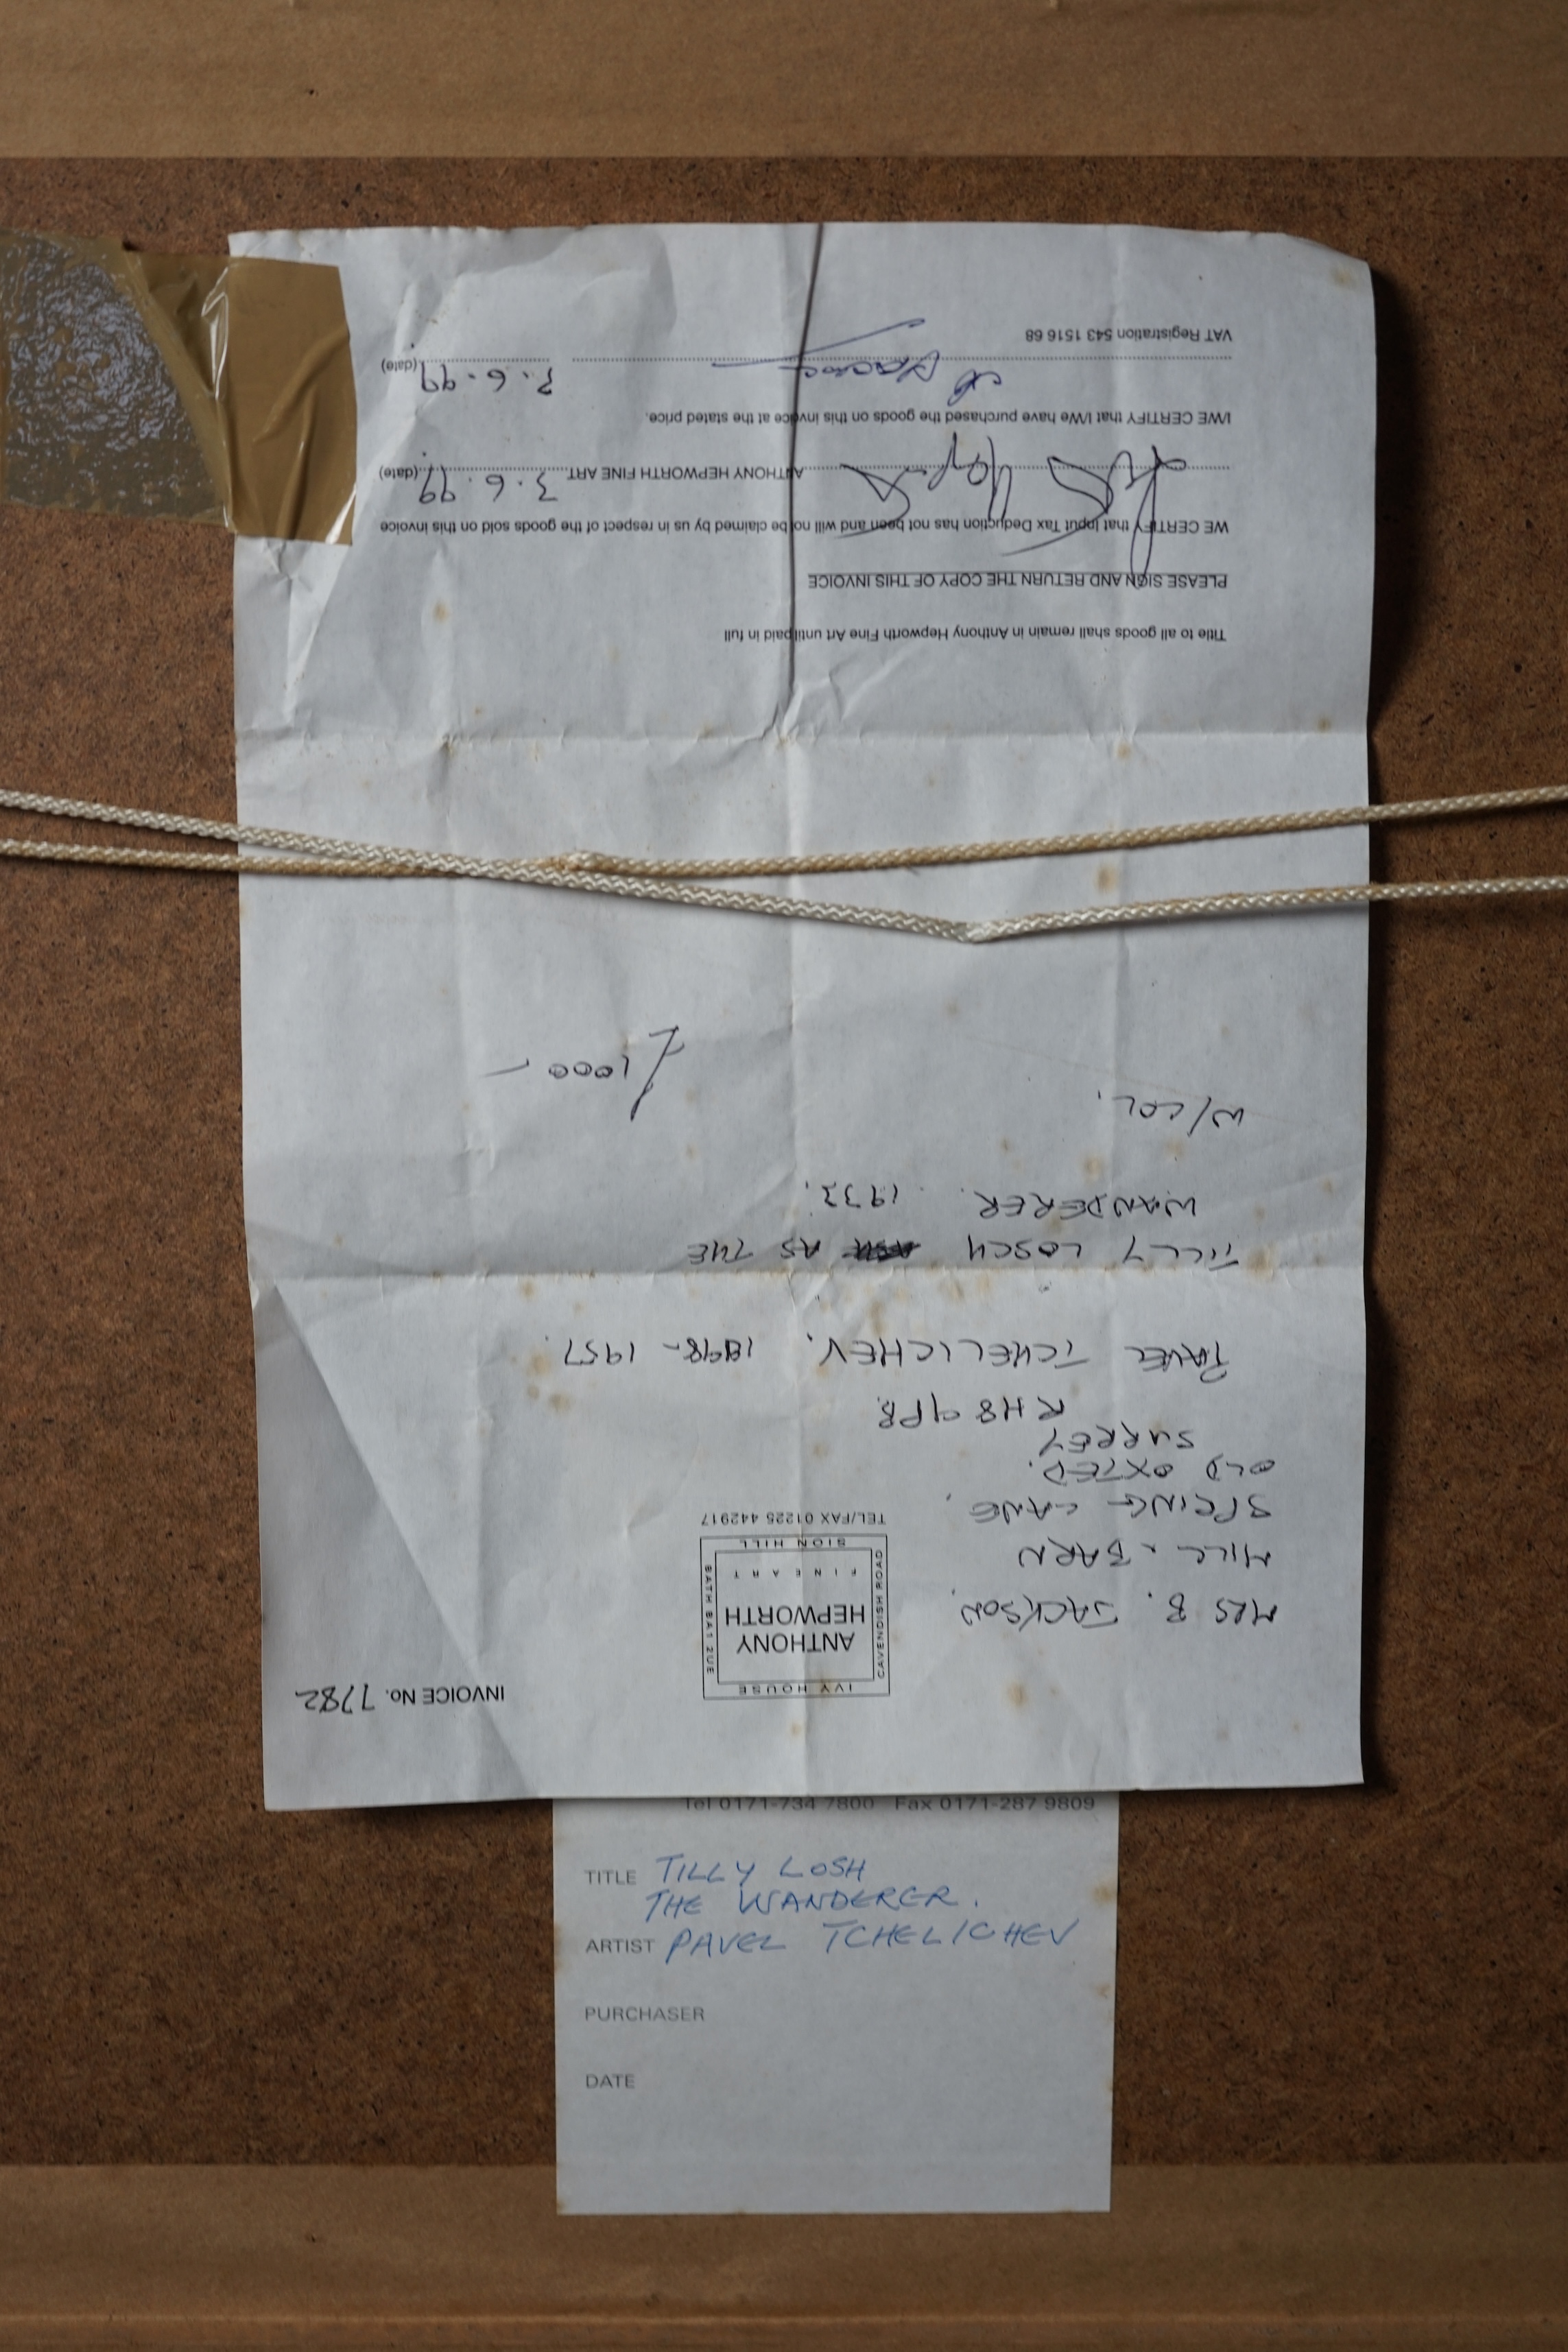 INVOICE No. 7782
IVY HOUSE
CAVENDISH ROAD
ANTHONY
HEPWORTH
FINE ART
BATH BA1 2UE
SION HILL
TEL/FAX 01225 442917
MRS B. JACKSON.
MILL BARN
SPRING LANE,
OLD OXTED.
SURREY
RH8 9PB
PAVEL TCHELICHEV. 1898 - 1957.
TILLY LOSCH AS THE
WANDERER. 1933.
W/COL.
£1000 -
Title to all goods shall remain in Anthony Hepworth Fine Art until paid in full
PLEASE SIGN AND RETURN THE COPY OF THIS INVOICE
WE CERTIFY that Input Tax Deduction has not been and will not be claimed by us in respect of the goods sold on this invoice
ANTHONY HEPWORTH FINE ART 3.6.99 (date)
I/WE CERTIFY that I/We have purchased the goods on this invoice at the stated price.
.6.99 (date)
VAT Registration 543 1516 68
Tel 0171-734 7800 Fax 0171-287 9809
TITLE TILLY LOSH
THE WANDERER.
ARTIST PAVEL TCHELICHEV
PURCHASER
DATE